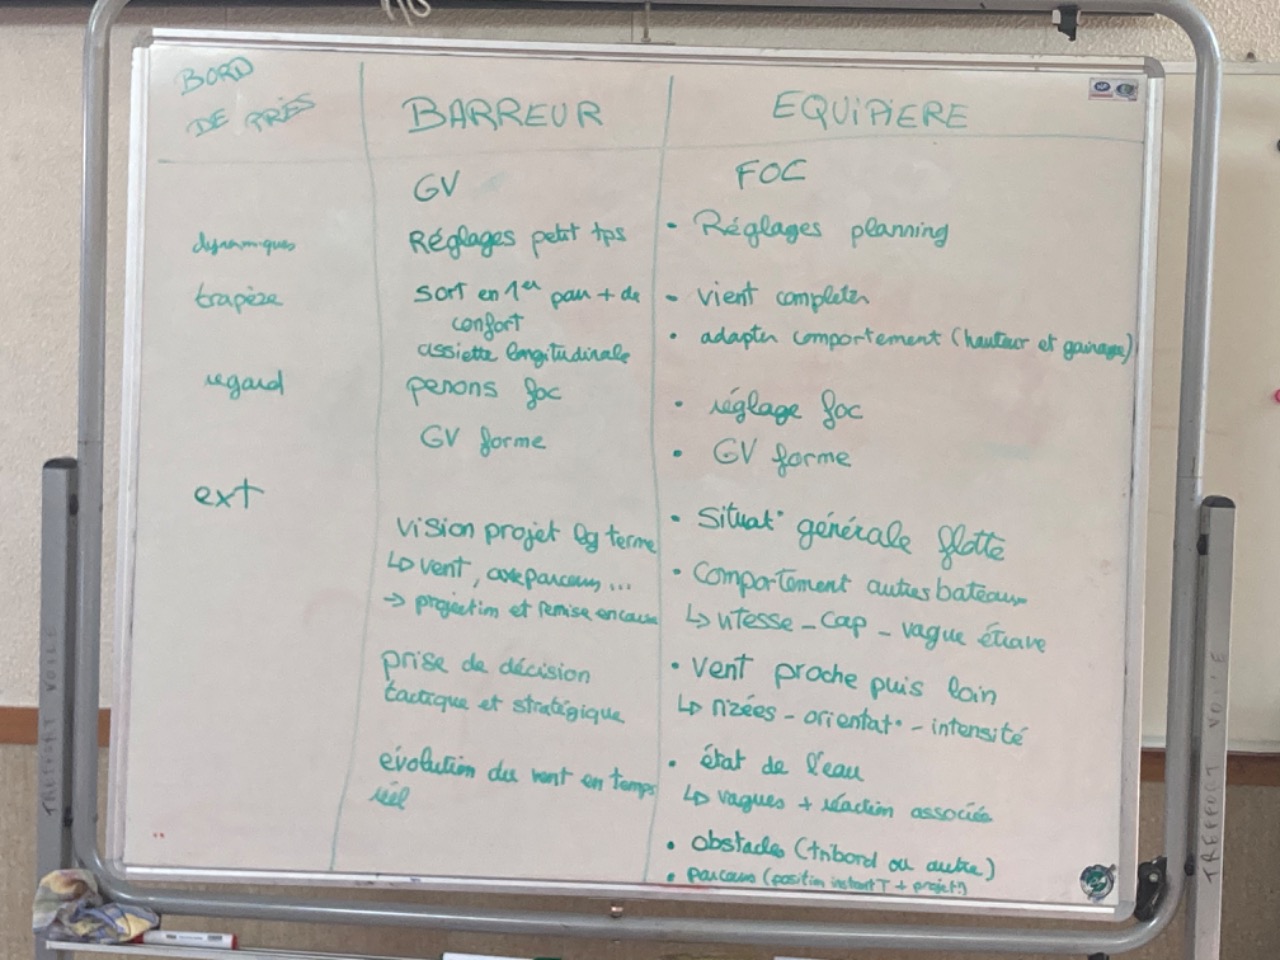 BORD
DE PRÈS
BARREUR
EQUIPIERE
GV
FOC
dynamiques
Réglages petit tps
• Réglages planning
trapèze
sort en 1er pour + de
confort
assiette longitudinale
- vient completer
• adapter comportement (hauteur et gainage)
regard
penons foc
GV forme
• réglage foc
• GV forme
ext
vision projet lg terme
↳ vent, axe parcours, ...
→ projection et remise en cause
prise de décision
tactique et stratégique
évolution du vent en temps
réel
• Situat° générale flotte
• Comportement autres bateaux
↳ vitesse - cap - vague étrave
• Vent proche puis loin
↳ rizées - orientat° - intensité
• état de l'eau
↳ vagues + réaction associée
• obstacles (tribord ou autre)
• parcours (position instant T + projet°)
TREFFORT VOILE
TREFFORT VOILE